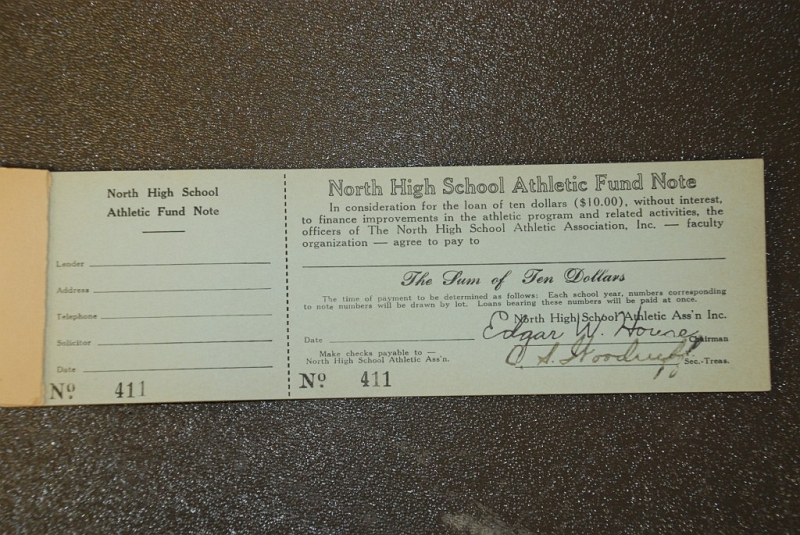 North High School
Athletic Fund Note
Lender
Address
Telephone
Solicitor
Date
No. 411
North High School Athletic Fund Note
In consideration for the loan of ten dollars ($10.00), without interest,
to finance improvements in the athletic program and related activities, the
officers of The North High School Athletic Association, Inc. — faculty
organization — agree to pay to
The Sum of Ten Dollars
The time of payment to be determined as follows: Each school year, numbers corresponding
to note numbers will be drawn by lot. Loans bearing these numbers will be paid at once.
North High School Athletic Ass'n Inc.
Date
Edgar W.
Chairman
Make checks payable to —
North High School Athletic Ass'n.
Sec.-Treas.
No. 411